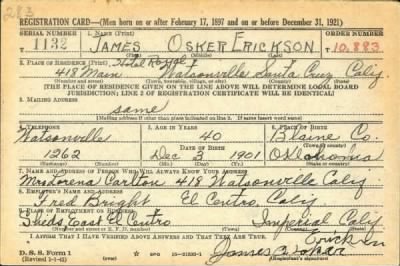 283
REGISTRATION CARD—(Men born on or after February 17, 1897 and on or before December 31, 1921)
SERIAL NUMBER 1. NAME (Print) ORDER NUMBER
1132 JAMES OSKER ERICKSON T10,883
2. PLACE OF RESIDENCE (Print) Hotel
418 Main Watsonville Santa Cruz Calif
[THE PLACE OF RESIDENCE GIVEN ON THE LINE ABOVE WILL DETERMINE LOCAL BOARD
JURISDICTION; LINE 2 OF REGISTRATION CERTIFICATE WILL BE IDENTICAL]
3. MAILING ADDRESS
same
[Mailing address if other than place indicated on line 2. If same insert word same]
4. TELEPHONE 5. AGE IN YEARS 6. PLACE OF BIRTH
Watsonville 40 Blaine Co.
DATE OF BIRTH (Town or county)
1262 Dec 3 1901 Oklahoma
(Exchange) (Number) (Mo.) (Day) (Yr.) (State or country)
7. NAME AND ADDRESS OF PERSON WHO WILL ALWAYS KNOW YOUR ADDRESS
Mrs Lorena Carlton 418 Watsonville Calif
8. EMPLOYER'S NAME AND ADDRESS
Fred Bright El Centro, Calif
9. PLACE OF EMPLOYMENT OR BUSINESS
Sheds East El Centro Imperial Calif
(Number and street or R. F. D. number) (Town) (County) (State)
I AFFIRM THAT I HAVE VERIFIED ABOVE ANSWERS AND THAT THEY ARE TRUE.
D. S. S. Form 1
(Revised 1-1-42) (over) GPO 16—21630-1 James Osker
(Registrant's signature)